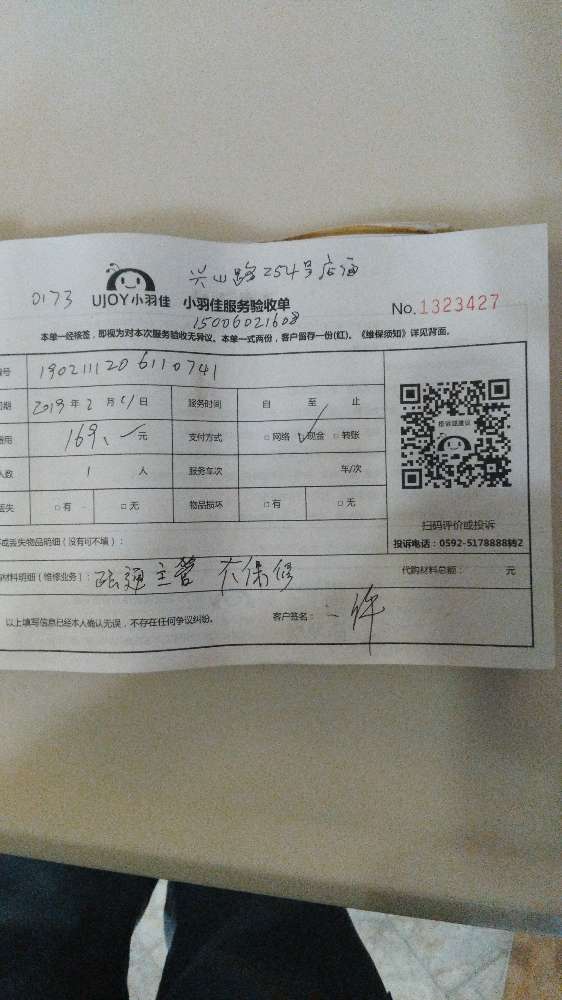 兴山路254号店面
0173 UJOY小羽佳 小羽佳服务验收单
No.1323427
15006021608
本单一经核签，即视为对本次服务验收无异议。本单一式两份，客户留存一份(红)。《维保须知》详见背面。
号 190211120 6110741
期 2019年2月 日 服务时间 自 至 止
用 169 元 支付方式 □网络 □现金 □转账
人数 1 人 服务车次 车/次
丢失 □有 □无 物品损坏 □有 □无
投诉或建议
扫码评价或投诉
投诉电话：0592-5178888转2
或丢失物品明细（没有可不填）：
材料明细（维修业务）： 疏通主管 不保修
代购材料总额： 元
以上填写信息已经本人确认无误，不存在任何争议纠纷。 客户签名：